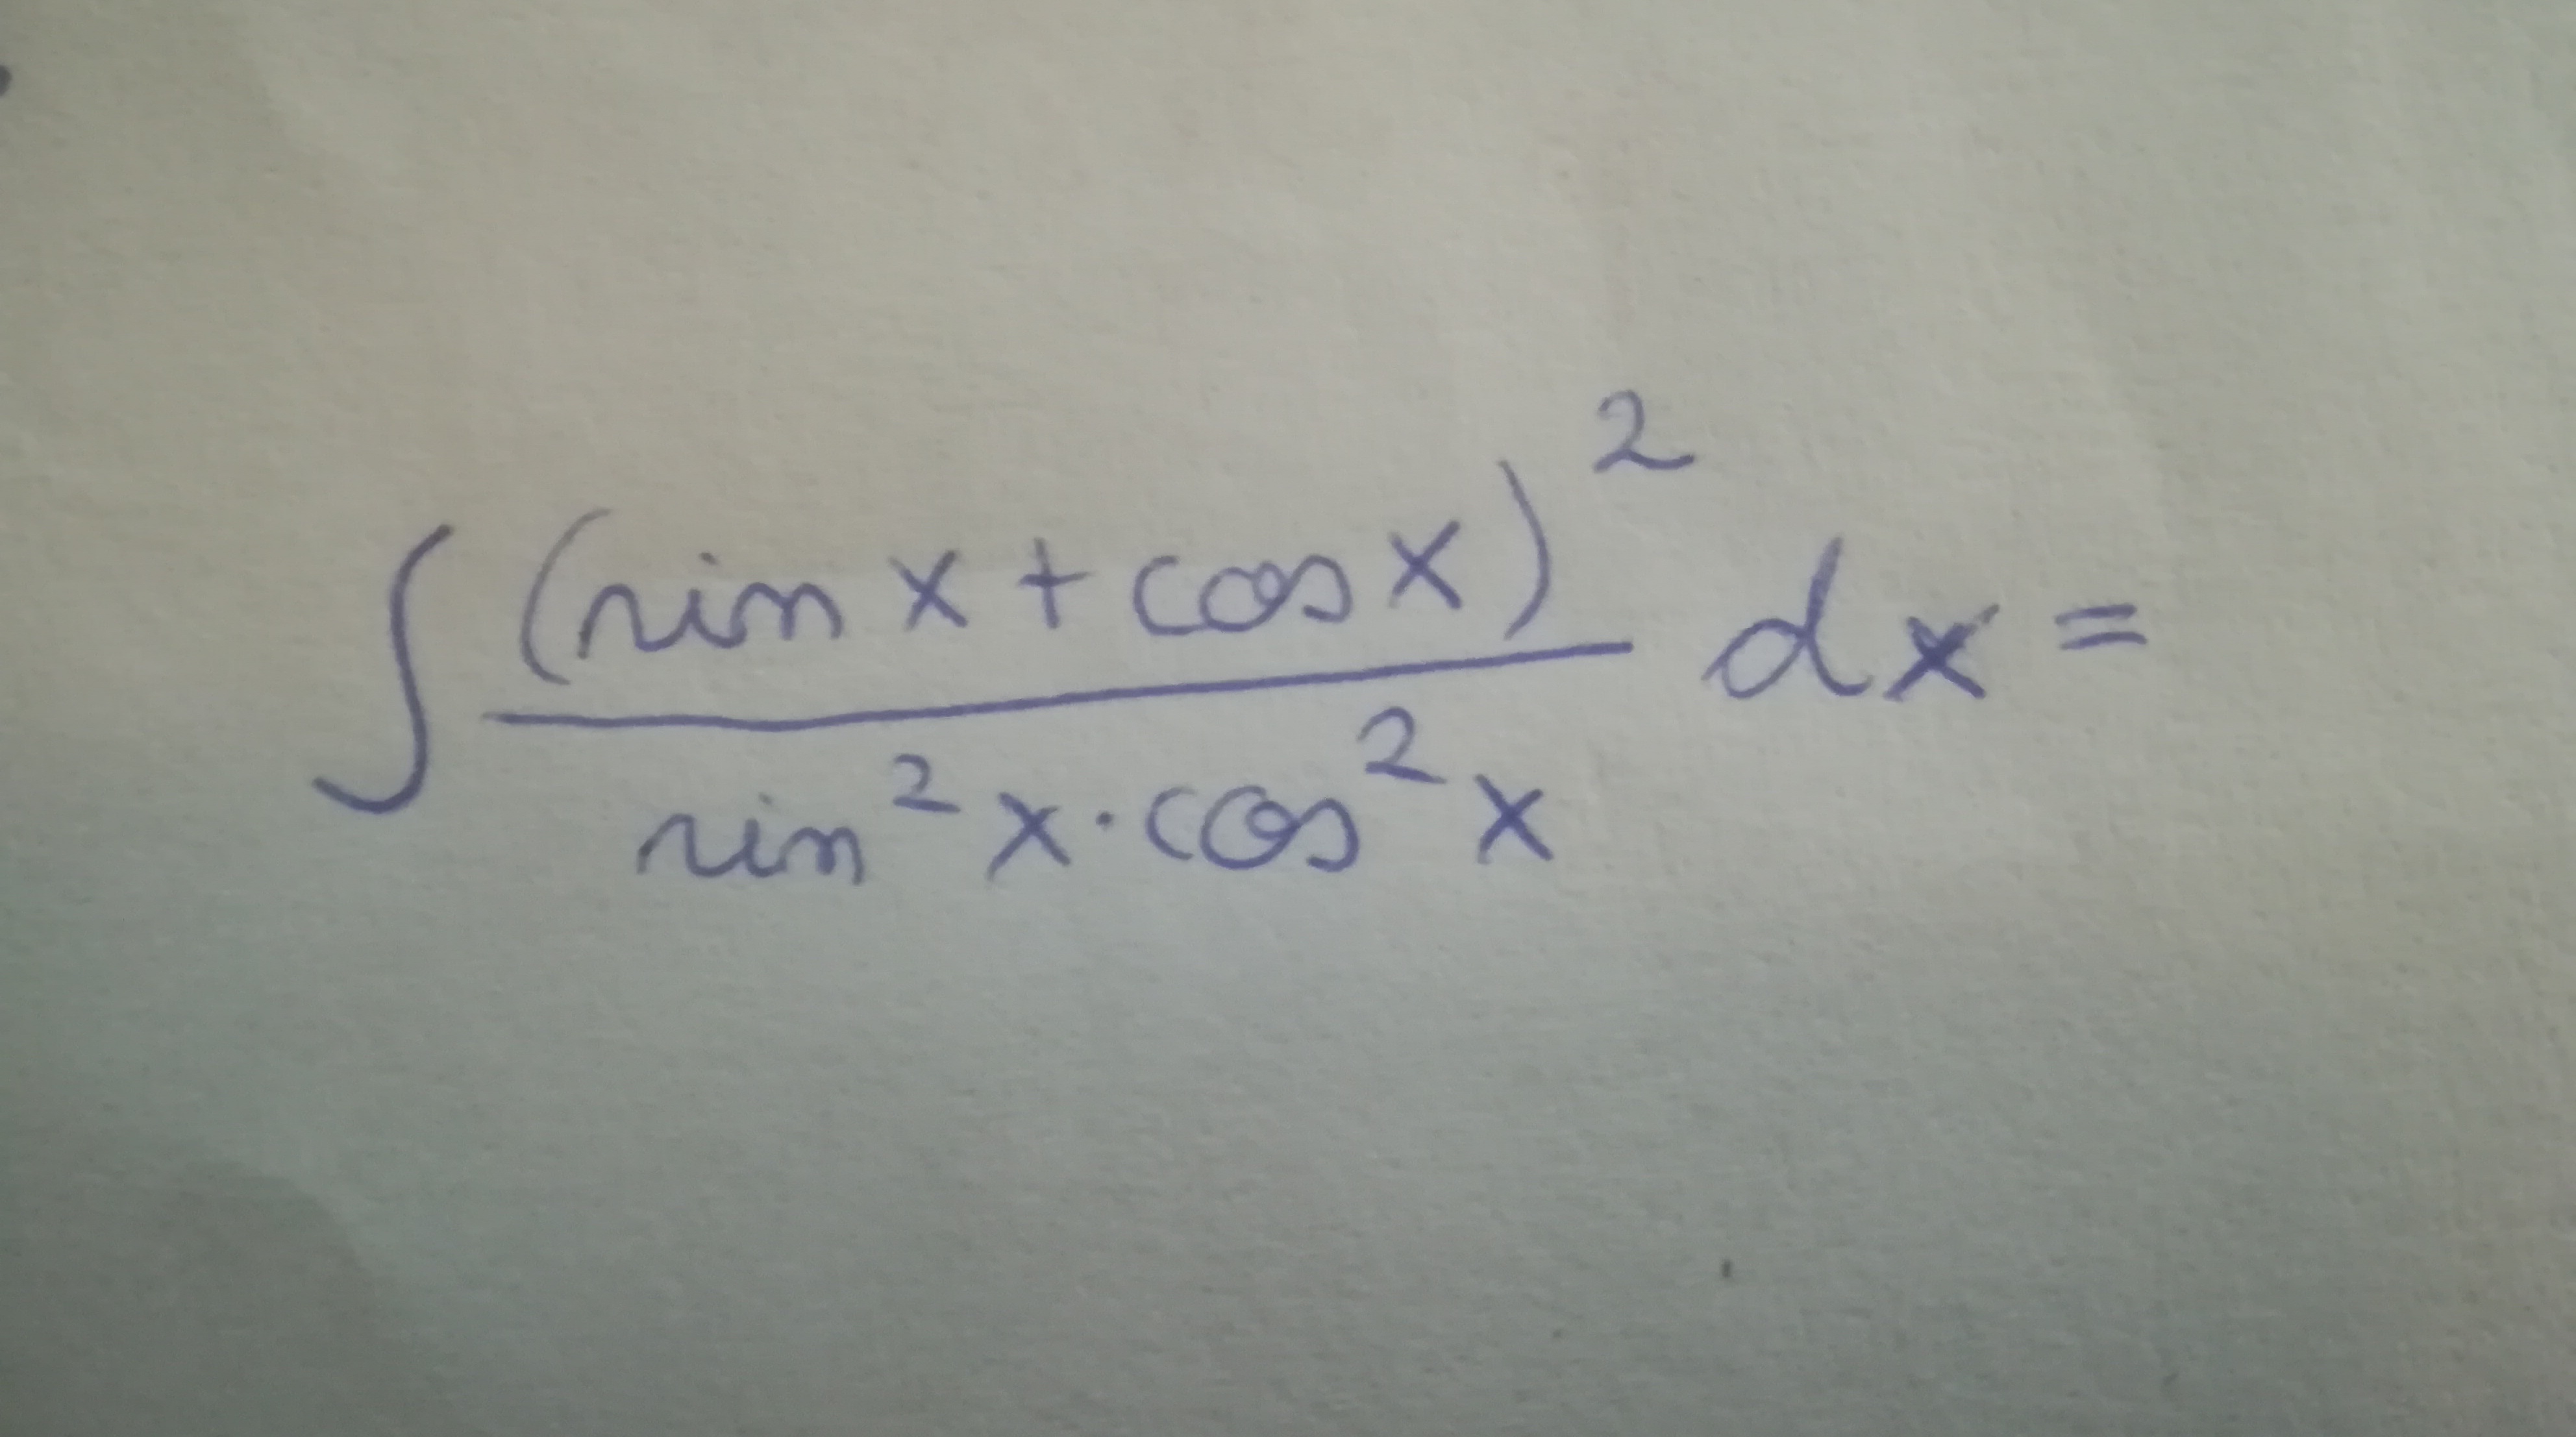 ∫ (sin x + cos x)² / (sin² x · cos² x) dx =